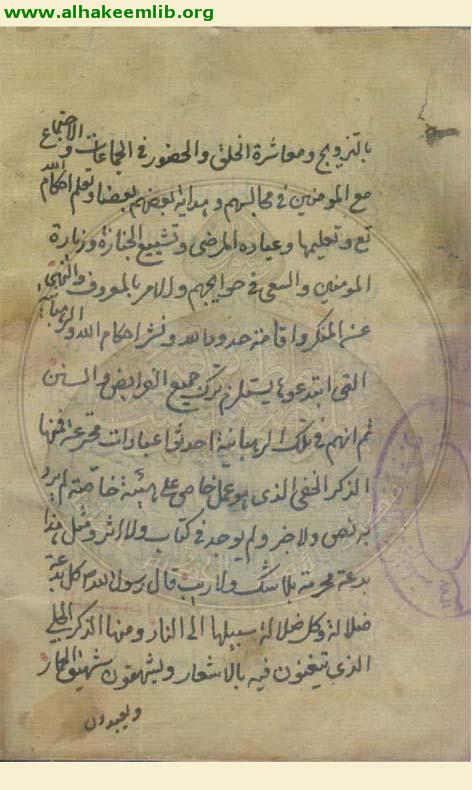 www.alhakeemlib.org
بالتزويج ومعاشرة الخلق والحضور في الجماعات والاجتماع
مع المومنين في مجالسهم وهداية بعضهم بعضا وتعلم احكام الله
تع وتعليمها وعيادة المرضى وتشييع الجنازة وزيارة
المومنين والسعى في حوايجهم والامر بالمعروف والنهى
عن المنكر واقامة حدود الله ونشر احكام الله والرهبانية
التى ابتدعوها يستلزم ترك جميع الفرايض والسنن
ثم انهم في تلك الرهبانية احدثوا عبادات مخترعة فمنها
الذكر الخفى الذى هو عمل خاص على هيئة خاصة لم يرد
به نص ولا خبر ولم يوجد في كتاب ولا اثر ومثل هذا
بدعة محرمة بلا شك ولا ريب قال رسول الله ص كل بدعة
ضلالة وكل ضلالة سبيلها الى النار ومنها الذكر الجلي
الذى تيغنون فيه بالاشعار ويشهقون شهيق الحمار
ويعبدون